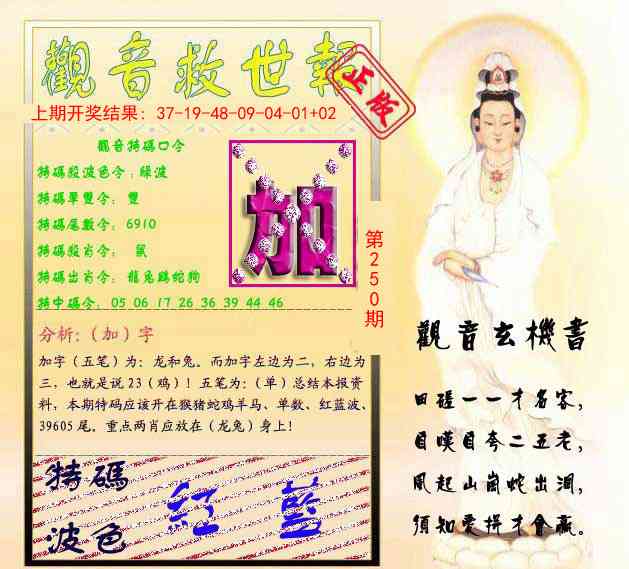 觀音救世報
正版
上期开奖结果：37-19-48-09-04-01+02
觀音特碼口令
特碼殺波色令：綠波
特碼單雙令： 雙
特碼尾數令：6910
特碼殺肖令： 鼠
特碼出肖令：龍兔鷄蛇狗
特中碼令：05 06 17 26 36 39 44 46
加
第250期
分析:（加）字
加字（五笔）为：龙和兔。而加字左边为二，右边为
三，也就是说23（鸡）！五笔为：（单）总结本报资
料，本期特码应该开在猴猪蛇鸡羊马、单数、红蓝波、
39605尾。重点两肖应放在（龙兔）身上！
特碼
波色
紅 藍
觀音玄機書
田磋一一才名家，
自嘆自夸二五老，
風起山崗蛇出洞，
須知愛拼才會贏。